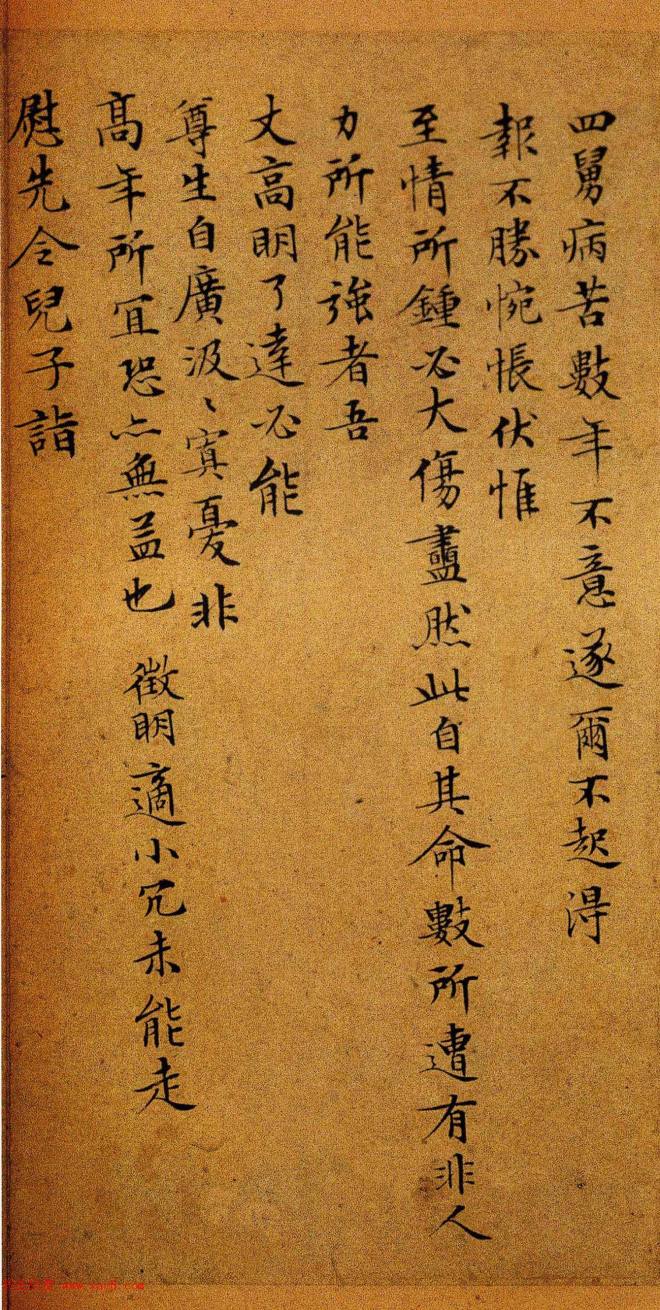 四舅病苦數年不意遂爾不起得
報不勝惋悵伏惟
至情所鍾必大傷盡然此自其命數所遭有非人
力所能強者吾
丈高明了達必能
尊生自廣汲〻寘憂非
高年所宜恐亦無益也 徵明適小冗未能走
慰先令兒子詣